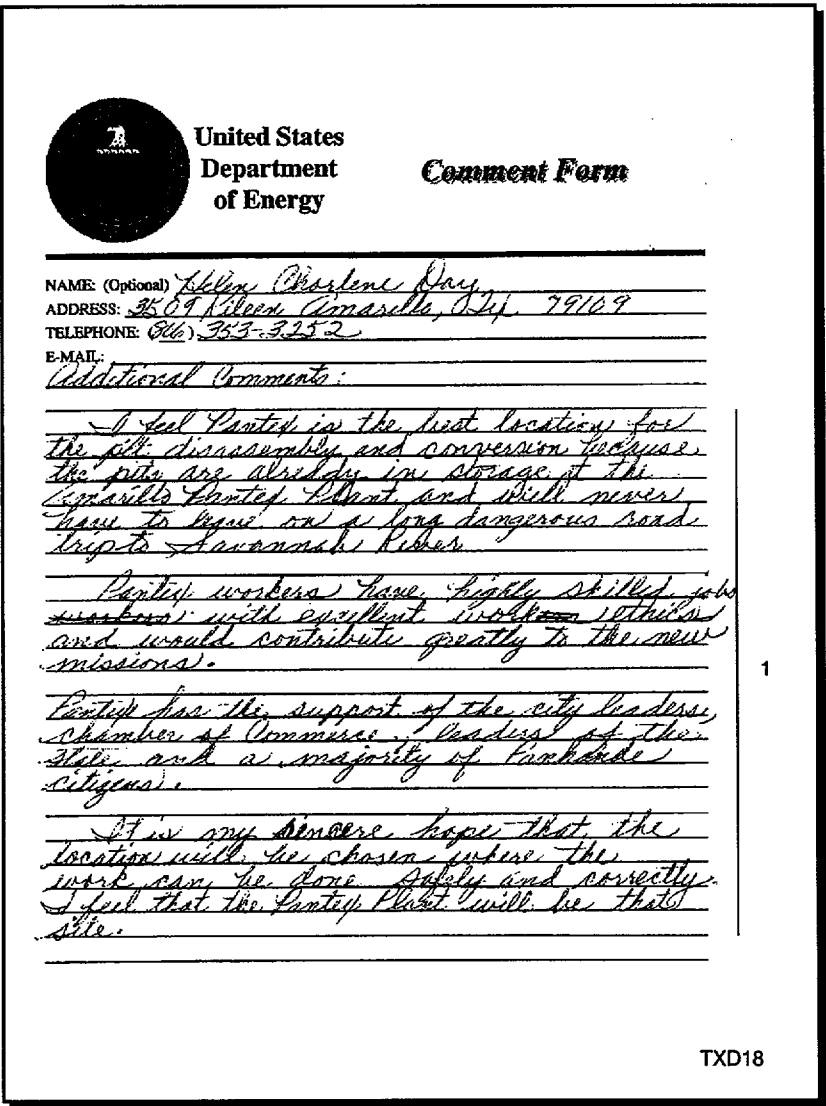 United States
Department
of Energy
Comment Form
NAME: (Optional) Helen Charlene Day
ADDRESS: 3509 Kileen Amarillo, Tex. 79109
TELEPHONE: (806) 353-3252
E-MAIL:
Additional Comments:
I feel Pantex is the best location for
the pit disassembly and conversion because
the pits are already in storage at the
Amarillo Pantex Plant and will never
have to leave on a long dangerous road
trip to Savannah River
Pantex workers have highly skilled jobs
workers with excellent work ethics
and would contribute greatly to the new
missions.
Pantex has the support of the city leaders,
chamber of Commerce, leaders of the
state and a majority of Panhandle
citizens.
It is my sincere hope that the
location will be chosen where the
work can be done safely and correctly.
I feel that the Pantex Plant will be that
site.
1
TXD18